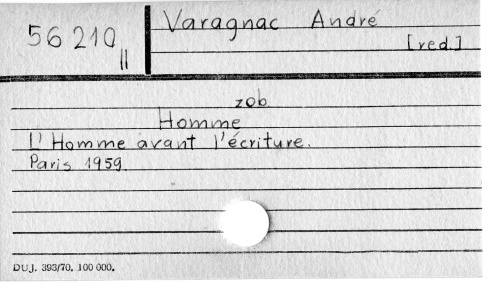 56 210
II
Varagnac André
[red.]
zob.
Homme
L'Homme avant l'écriture.
Paris 1959.
DUJ. 393/70. 100 000.